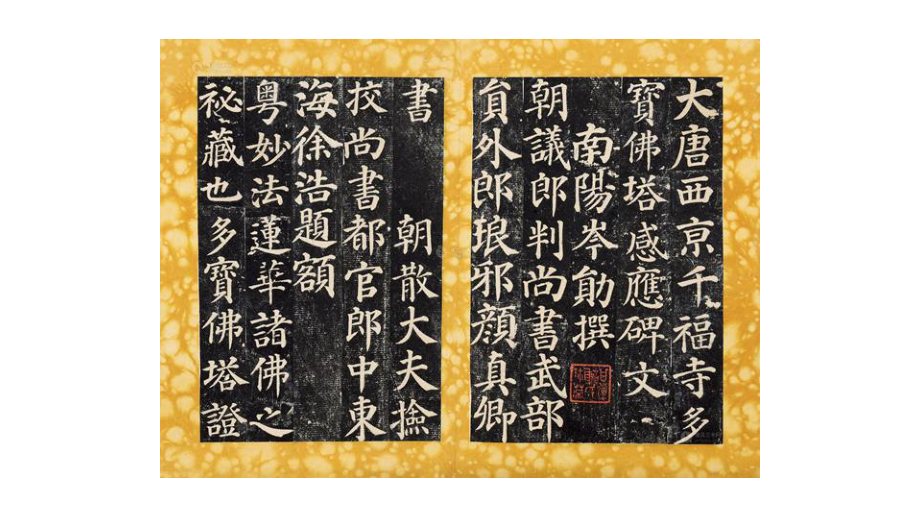 大唐西亰千福寺多
寶佛塔感應碑文
南陽岑勛撰
朝議郎判尚書武部
貟外郎琅邪顏真卿
書　朝散大夫撿
挍尚書都官郎中東
海徐浩題額
粵妙法蓮華諸佛之
祕藏也多寶佛塔證